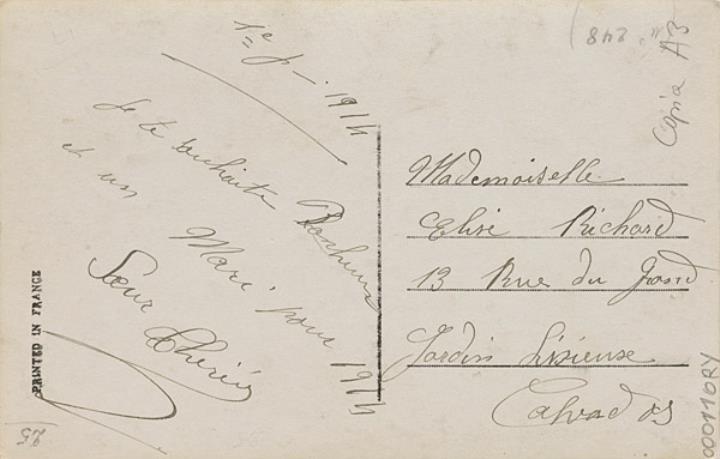 1re j - 1914
Je te souhaite Bonheur
et un Mari pour 1914
Sœur Chérie
PRINTED IN FRANCE
Mademoiselle
Elise Richard
13 Rue du Grand
Jardin Lisieuse
Calvados
248
Copia A3
000116RY
25